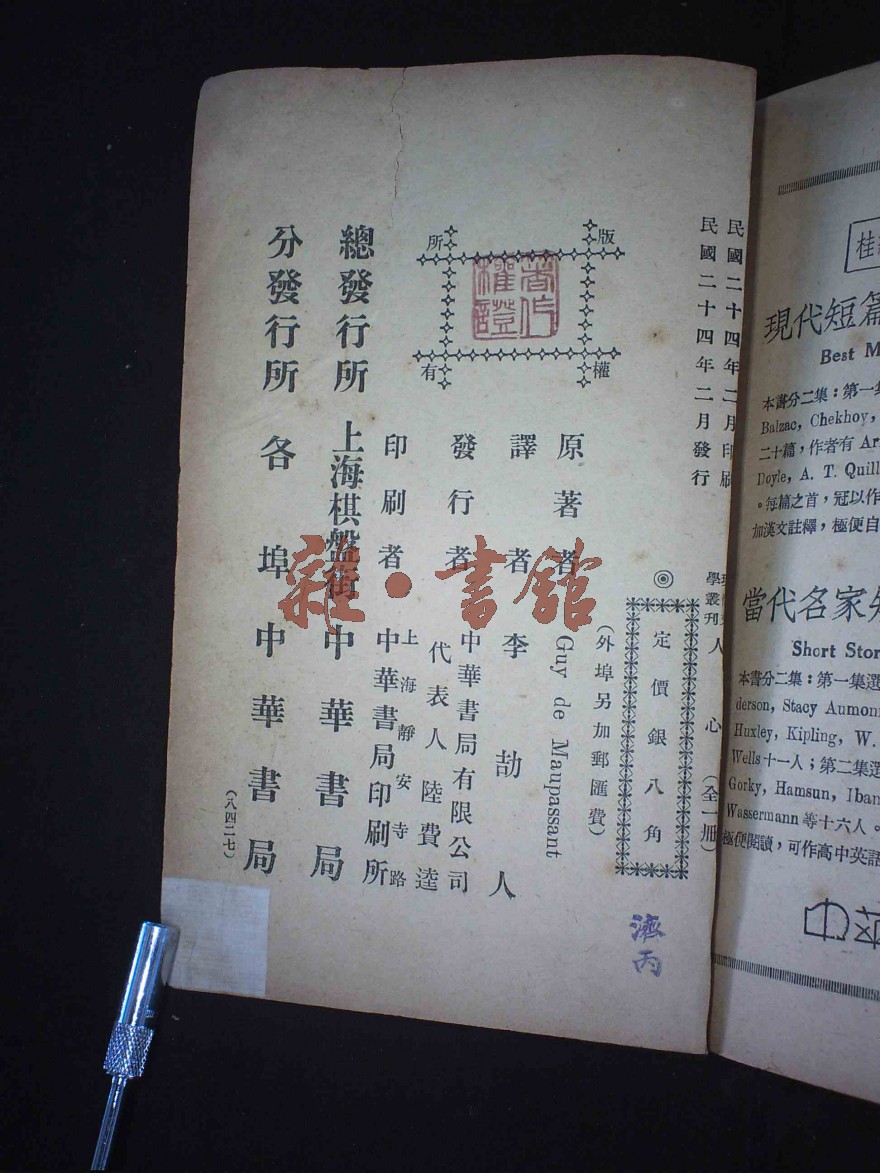 民國二十四年二月印刷
民國二十四年二月發行
學叢刊 人心（全一冊）
◎
定價銀八角
（外埠另加郵匯費）
版權所有
著作權證
原著者 Guy de Maupassant
譯者 李劼人
發行者 中華書局有限公司
代表人 陸費逵
印刷者 上海靜安寺路
中華書局印刷所
總發行所 上海棋盤街 中華書局
分發行所 各埠中華書局
（八四二七）
濟丙
雜·書館
現代短篇
Best M
本書分二集：第一集
Balzac, Chekhov,
二十篇，作者有 Ar
Doyle, A. T. Quill
。每篇之首，冠以作
加漢文註釋，極便自
當代名家
Short Stor
本書分二集：第一集選
derson, Stacy Aumoni
Huxley, Kipling, W.
Wells 十一人；第二集選
Gorky, Hamsun, Iban
Wassermann 等十六人。
極便閱讀，可作高中英語
中